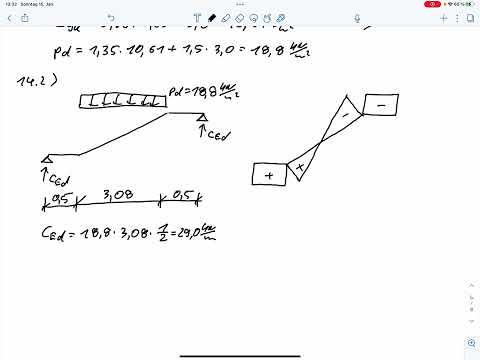 13:33 Sonntag 15. Jan.
pd = 1,35 · 10,61 + 1,5 · 3,0 = 18,8 kN/m²
14.2)
pd = 18,8 kN/m²
C_Ed
C_Ed
0,5 3,08 0,5
C_Ed = 18,8 · 3,08 · 1/2 = 29,0 kN/m
-
-
+
+